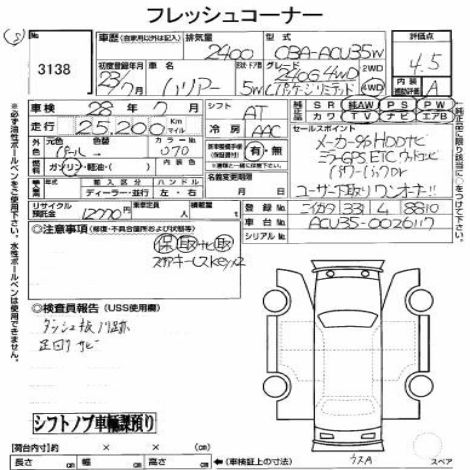 フレッシュコーナー
3138
車歴 (自家用以外は記入) 排気量 2400 型式 CBA-ACU35W 評価点 4.5
初度登録年月 23/7 車名 ハリアー ドア形状 5W グレード 240G 4WD Lパッケージリミテッド 2WD 4WD 内装補助評価 A
車検 28年 7月 シフト AT 純正品 SR 純AW PS PW
走行 25,200 Km マイル 冷房 AAC 革 TV ナビ エアB
外元色 色替 カラーNo 070
パール
燃料 ガソリン・軽油・( )
新車整備手帳(保証書) 有・無
セールスポイント
メーカー8インチHDDナビ
ミラーGPS ETC ウッドコンビ
パワーバックDr
ユーザー下取りワンオーナー!!
輸入区分 ハンドル 名義変更期限
ディーラー・並行 左・右 年 月 日
リサイクル預託金 12770円 乗車定員 名 積載量 登録No ニイガタ 331 ル 8810
車台No ACU35-0026117
シリアルNo
◎注意事項 (修復・不具合箇所および状態等)
保 取 ナビ取
スマートキーレスkey×2
◎検査員報告 (USS使用欄)
ダッシュ板 穴跡
足回り サビ
シフトノブ車輌課預り
【荷台内寸】 × × (cm)
長さ cm 幅 cm 高さ cm
◀(車検証上の寸法)
ウスA
スペア
※必ず油性ボールペンをご使用下さい。水性ボールペンは使用できません。